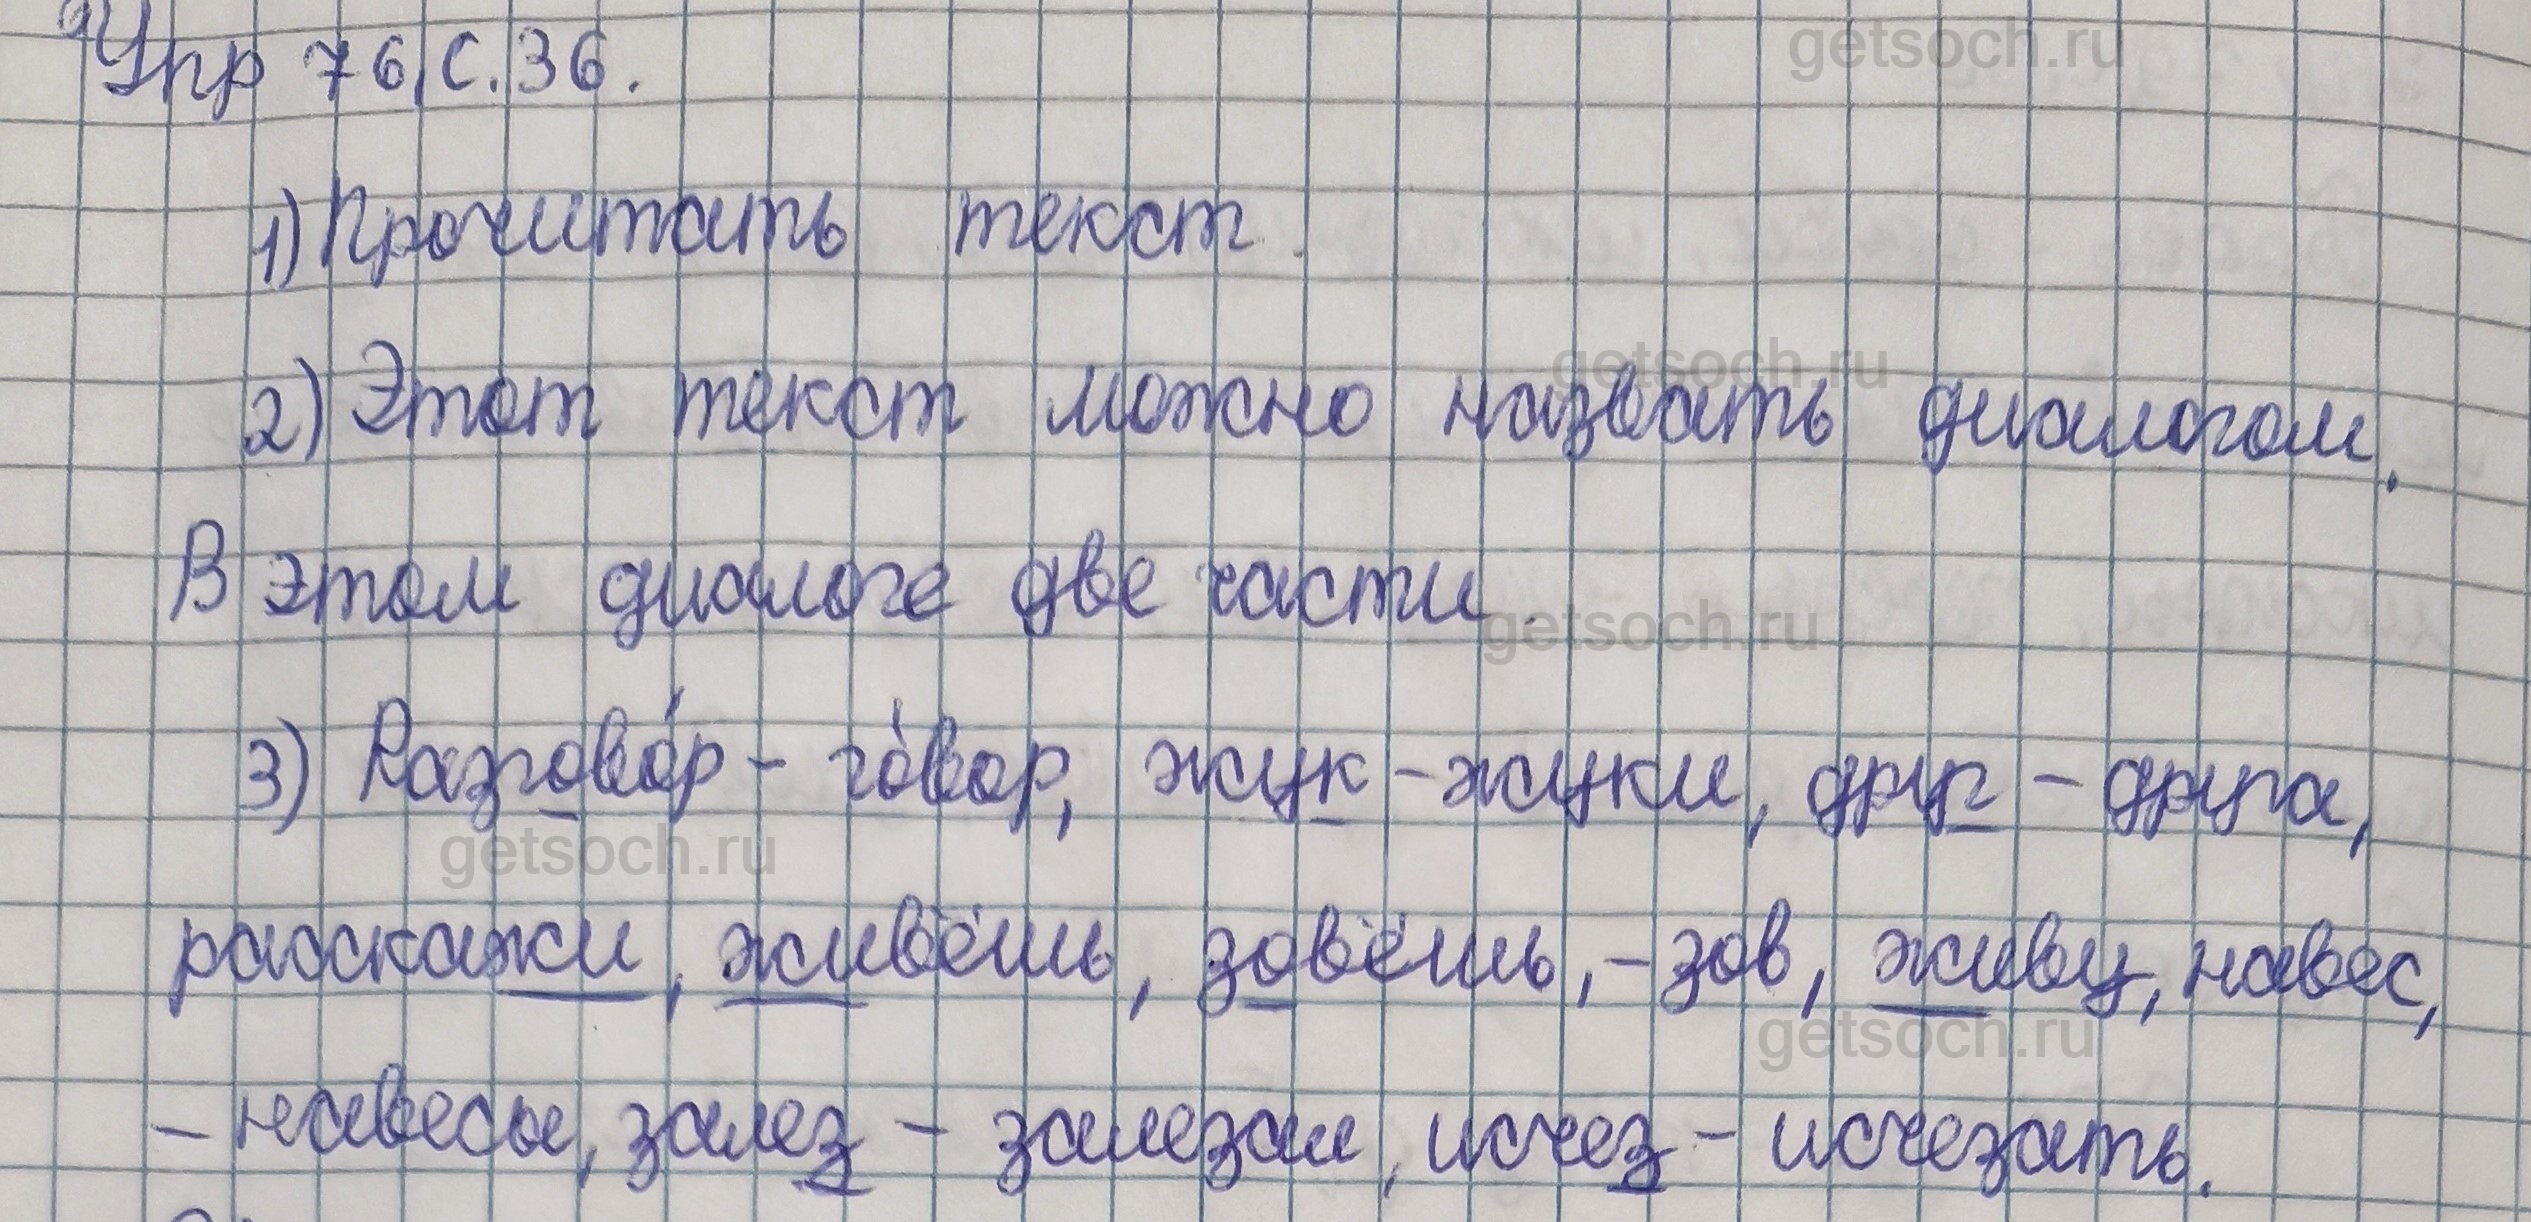 Упр 76, с. 36.
getsoch.ru
1) Прочитать текст.
getsoch.ru
2) Этот текст можно назвать диалогом.
В этом диалоге две части.
getsoch.ru
3) Разгово́р – го́вор, жук – жуки, друг – друга,
getsoch.ru
расскажи, живёшь, зовёшь, – зов, живу, навес,
getsoch.ru
– навесы, залез – залезал, исчез – исчезать.